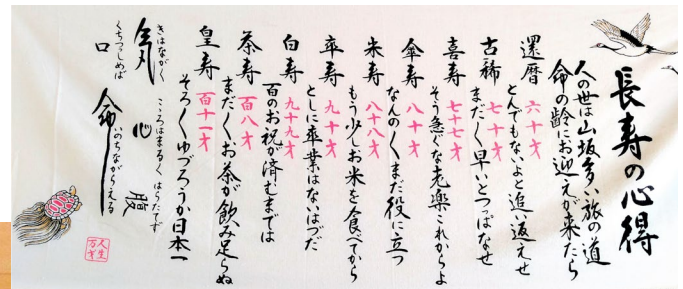 長寿の心得
人の世は山坂多い旅の道
命の齢にお迎えが来たら
還暦 六十才
とんでもないよと追い返えせ
古稀 七十才
まだ〱早いとつっぱなせ
喜寿 七十七才
そう急ぐな老楽これからよ
傘寿 八十才
なんの〱まだ役に立つ
米寿 八十八才
もう少しお米を食べてから
卒寿 九十才
としに卒業はないはづだ
白寿 九十九才
百のお祝が済むまでは
茶寿 百八才
まだ〱お茶が飲み足らぬ
皇寿 百十一才
そろ〱ゆづろうか日本一
きはながく こころはまるく はらたてず
気 心 腹
くちつつしめば いのちながらえる
口 命
人生
万才